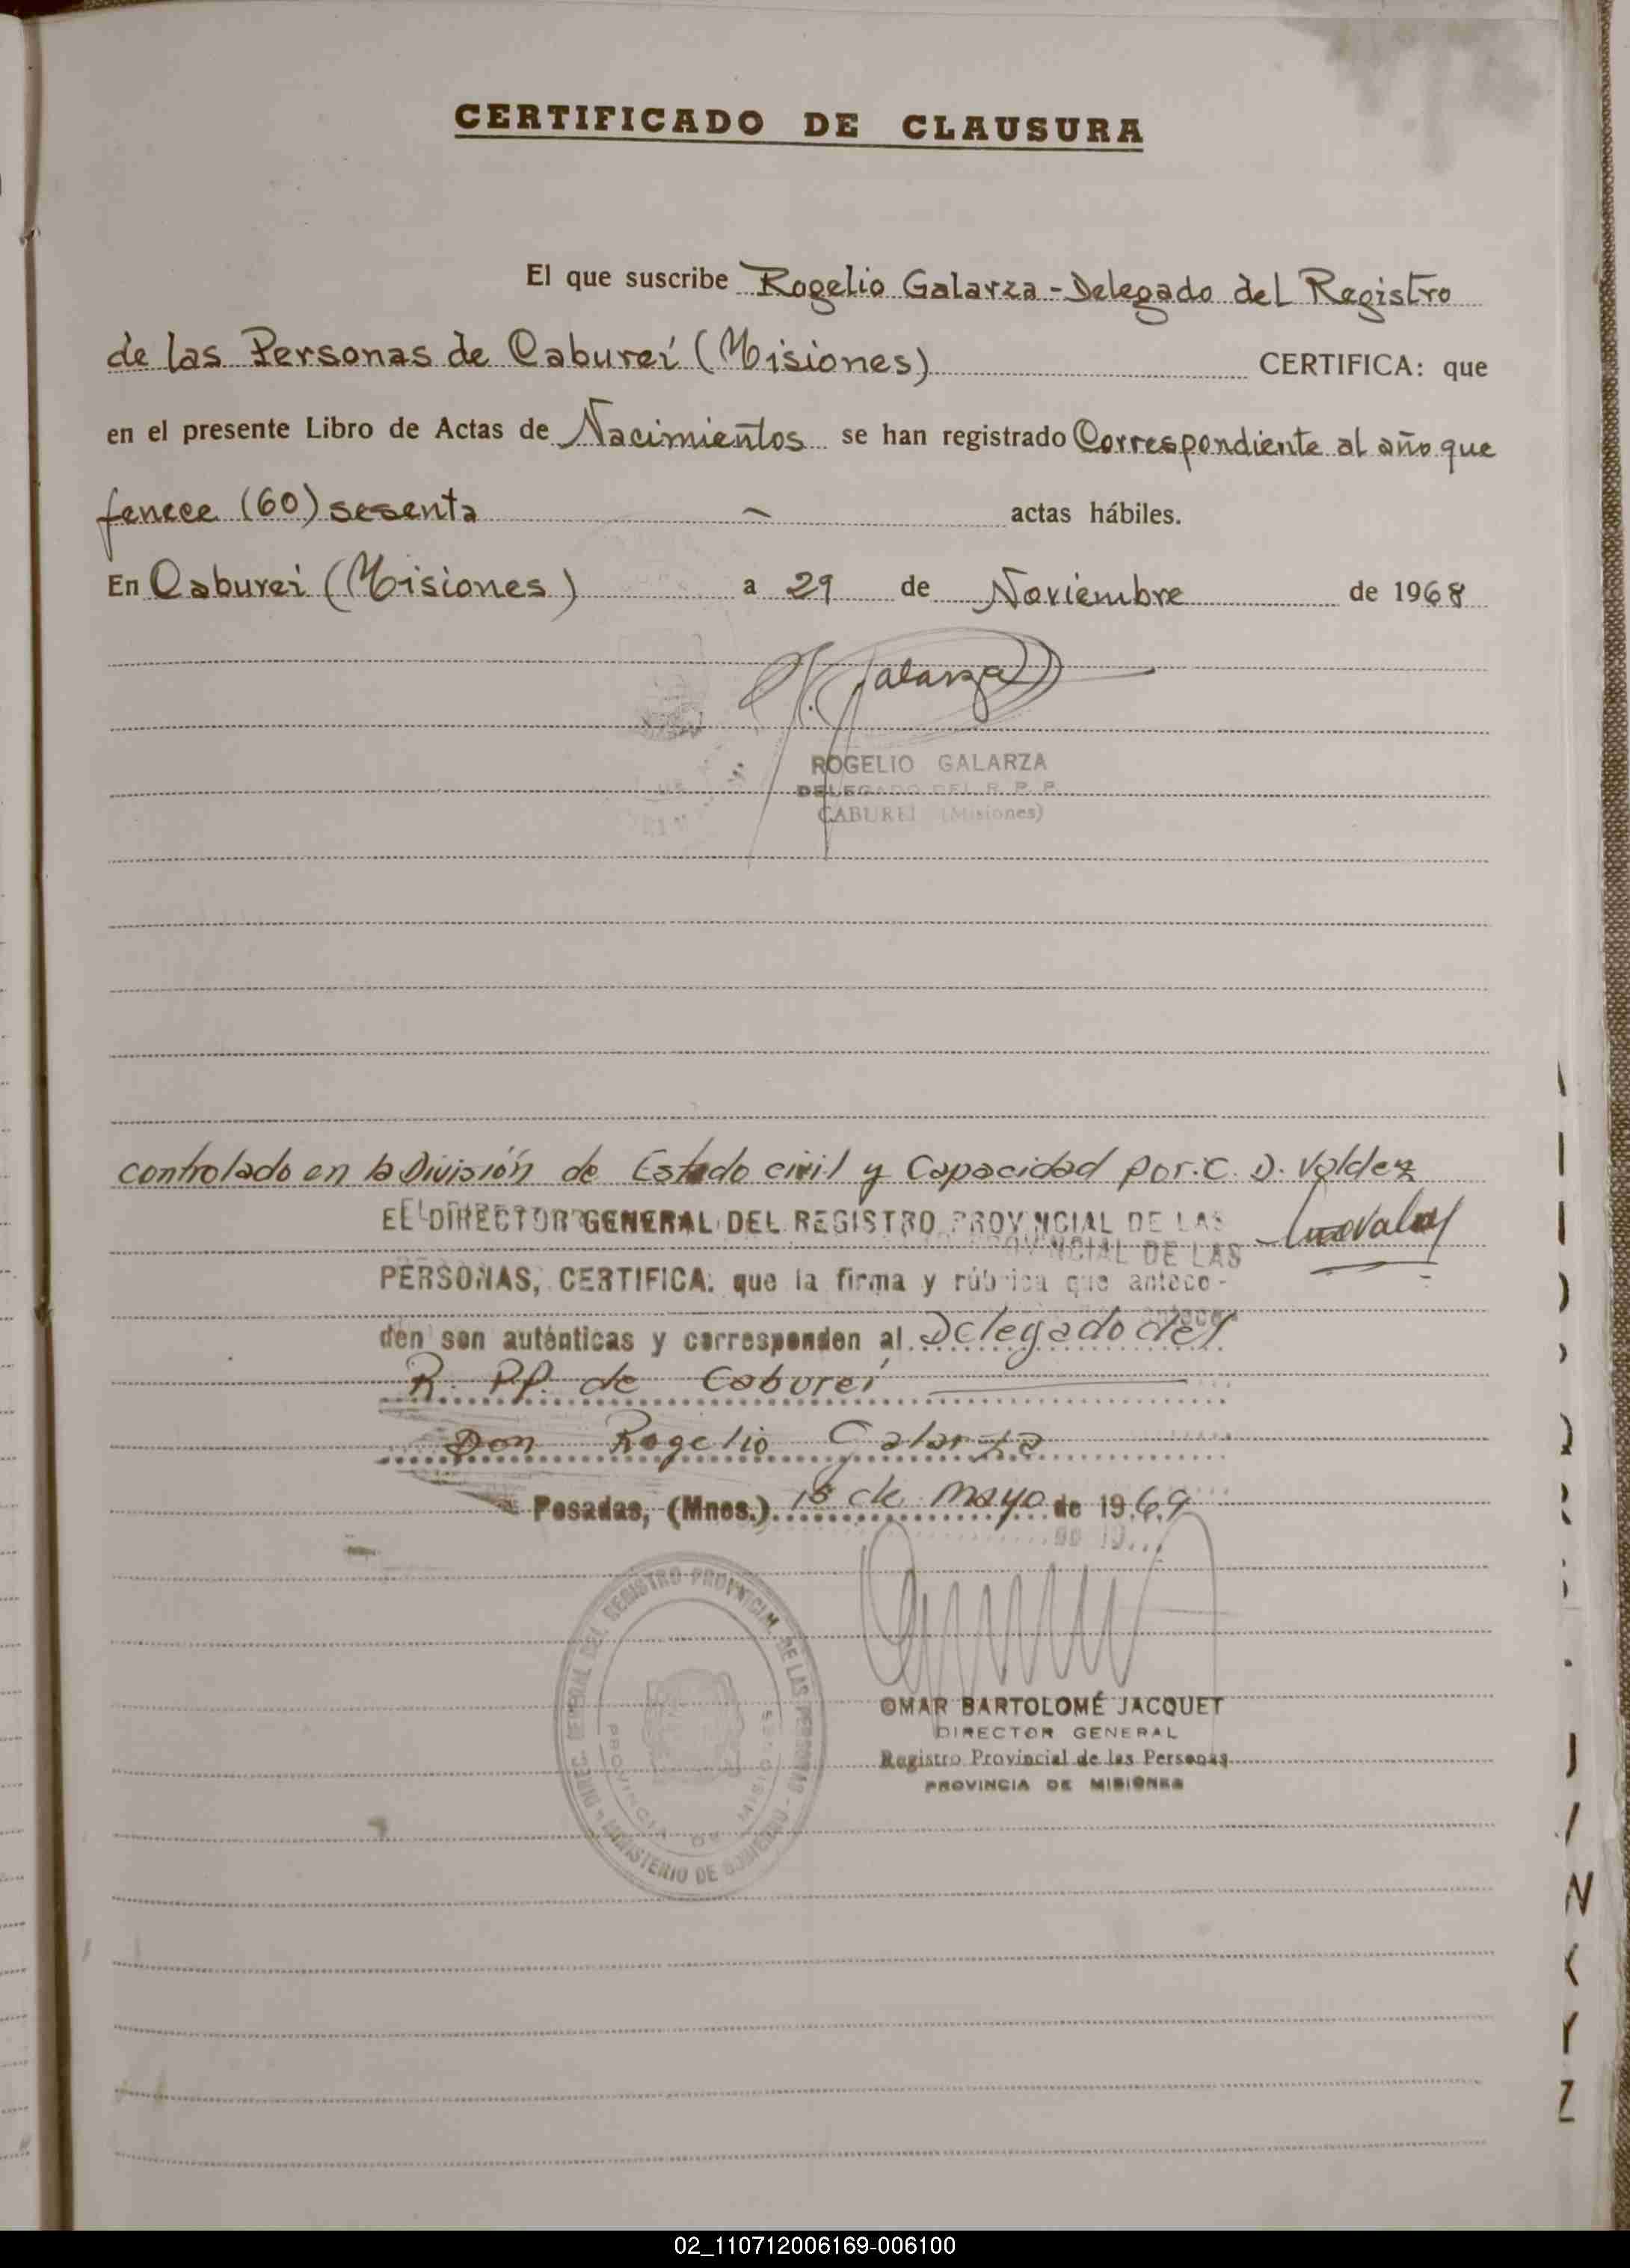 CERTIFICADO DE CLAUSURA
El que suscribe Rogelio Galarza - Delegado del Registro
de las Personas de Caburei (Misiones) CERTIFICA: que
en el presente Libro de Actas de Nacimientos se han registrado Correspondiente al año que
fenece (60) sesenta actas hábiles.
En Caburei (Misiones) a 29 de Noviembre de 1968
Galarza
ROGELIO GALARZA
DELEGADO DEL R. P. P.
CABUREI (Misiones)
controlado en la División de Estado civil y Capacidad por: C. D. Valdez
EL DIRECTOR GENERAL DEL REGISTRO PROVINCIAL DE LAS
PROVINCIAL DE LAS
PERSONAS, CERTIFICA: que la firma y rúbrica que antece-
den son auténticas y corresponden al Delegado del
R. PP. de Caburei
Don Rogelio Galarza
Posadas, (Mnes.) 15 de mayo de 1969
de 19...
DIREC. GENERAL DEL REGISTRO PROVINCIAL DE LAS PERSONAS - MINISTERIO DE GOBIERNO
PROVINCIA DE MISIONES
OMAR BARTOLOMÉ JACQUET
DIRECTOR GENERAL
Registro Provincial de las Personas
PROVINCIA DE MISIONES
J
N
Y
Z
02_110712006169-006100